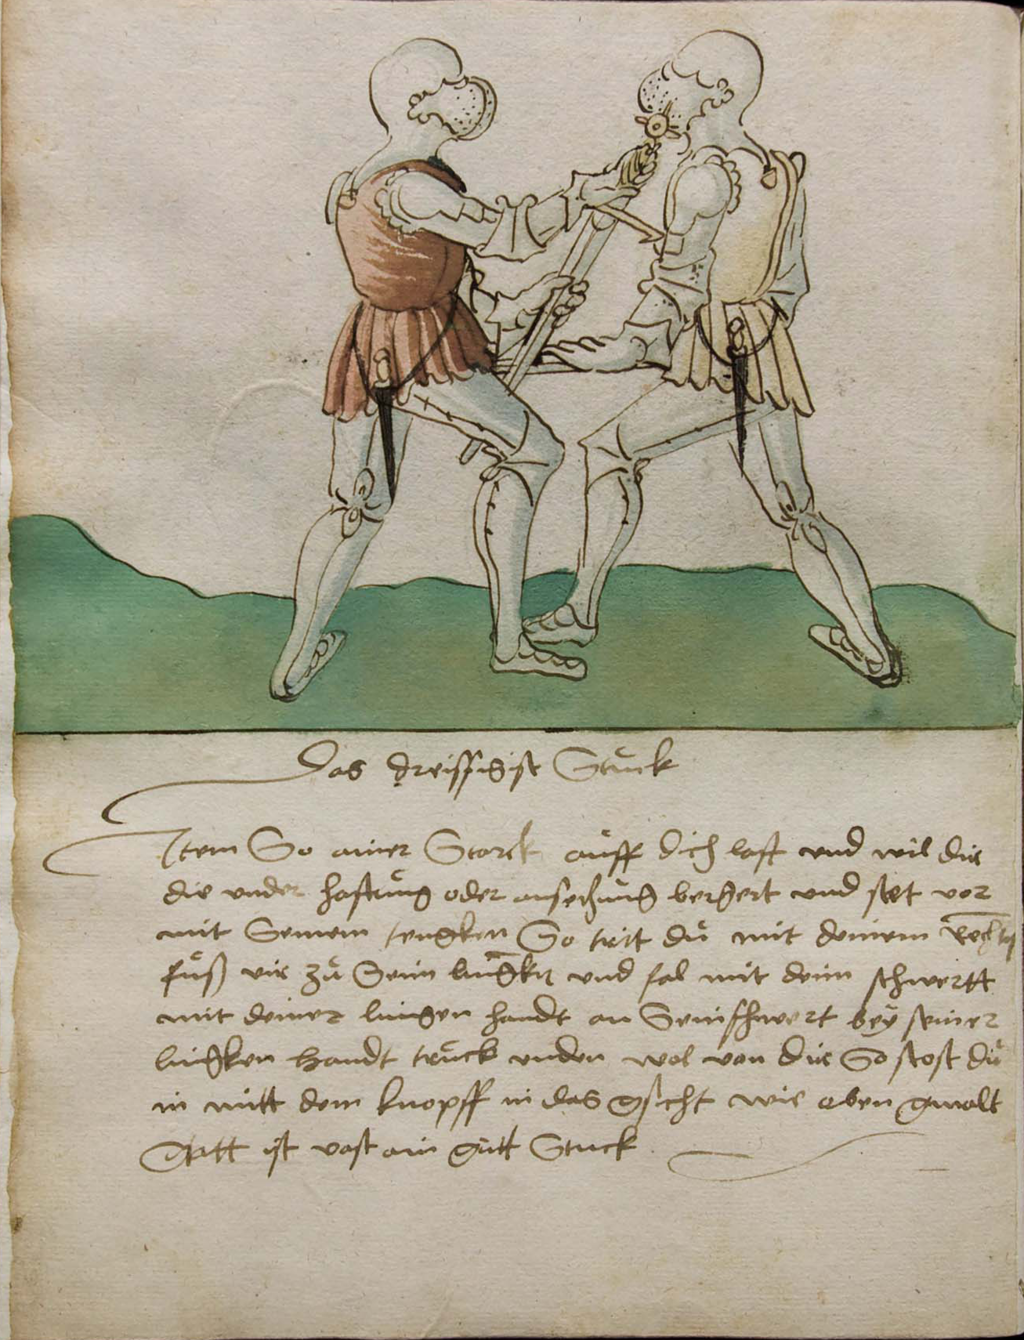 Das dreissigist Stuck
Item So ainer Starck auff dich last und wil dir
die under haltung oder ansechung berhert und stet vor
mit Seinem lengken So trit du mit deinem rechten
fuß vir zu Seim lingken und fal mit deim schwertt
mit deiner lingen handt an Sein schwert bey seiner
lingken Handt truck unden wol von dir So stost du
in mitt dem knopff in das gsicht wie oben gmalt
Statt ist vast ain gutt Stuck